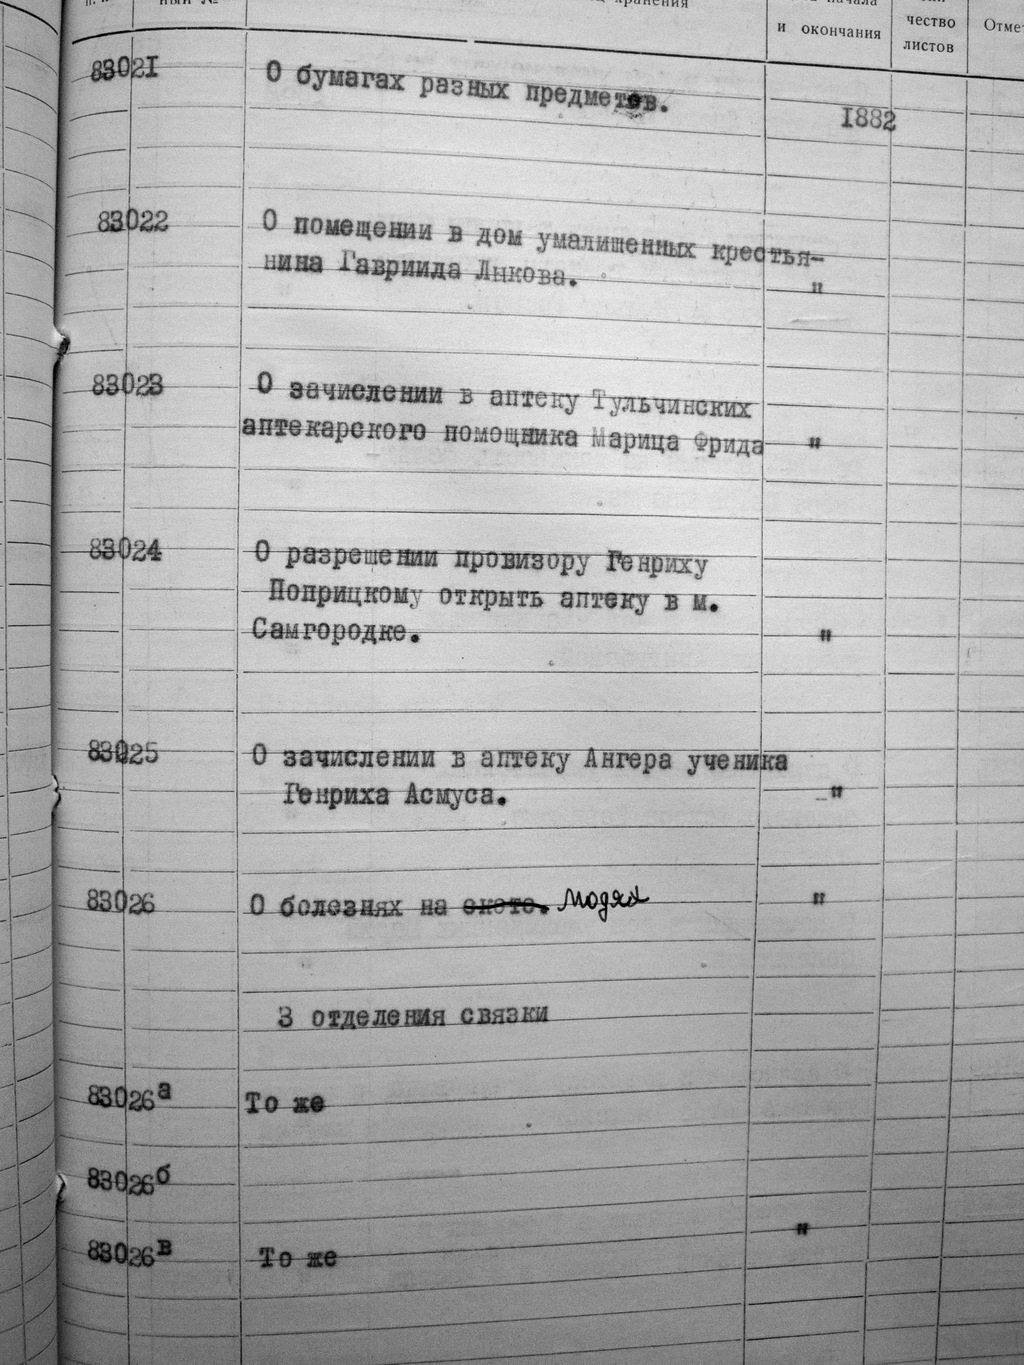 ный №
хранения
начала
и окончания
чество
листов
Отме
83021
О бумагах разных предметов.
1882
83022
О помещении в дом умалишенных крестья-
нина Гавриида Лыкова.
"
83023
О зачислении в аптеку Тульчинских
аптекарского помощника Марица Фрида
"
83024
О разрешении провизору Генриху
Поприцкому открыть аптеку в м.
Самгородке.
"
83025
О зачислении в аптеку Ангера ученика
Генриха Асмуса.
"
83026
О болезнях на скоте. людях
"
3 отделения связки
83026а
То же
83026б
"
83026в
То же